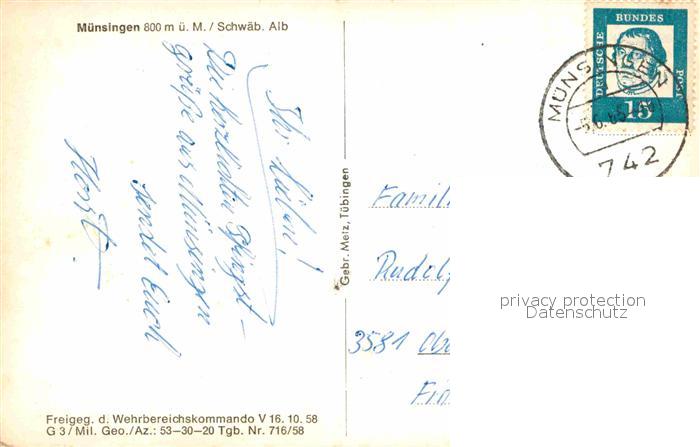 Münsingen 800 m ü. M. / Schwäb. Alb
Ihr Lieben!
Die herzlichsten Pfingst-
grüße aus Münsingen
sendet Euch
Horst.
Gebr. Metz, Tübingen
DEUTSCHE
BUNDES
POST
15
MÜNSINGEN
5.6.65
742
Famil
Rudol
3581 Obe
privacy protection
Datenschutz
Freigeg. d. Wehrbereichskommando V 16. 10. 58
G 3 / Mil. Geo. / Az.: 53-30-20 Tgb. Nr. 716/58